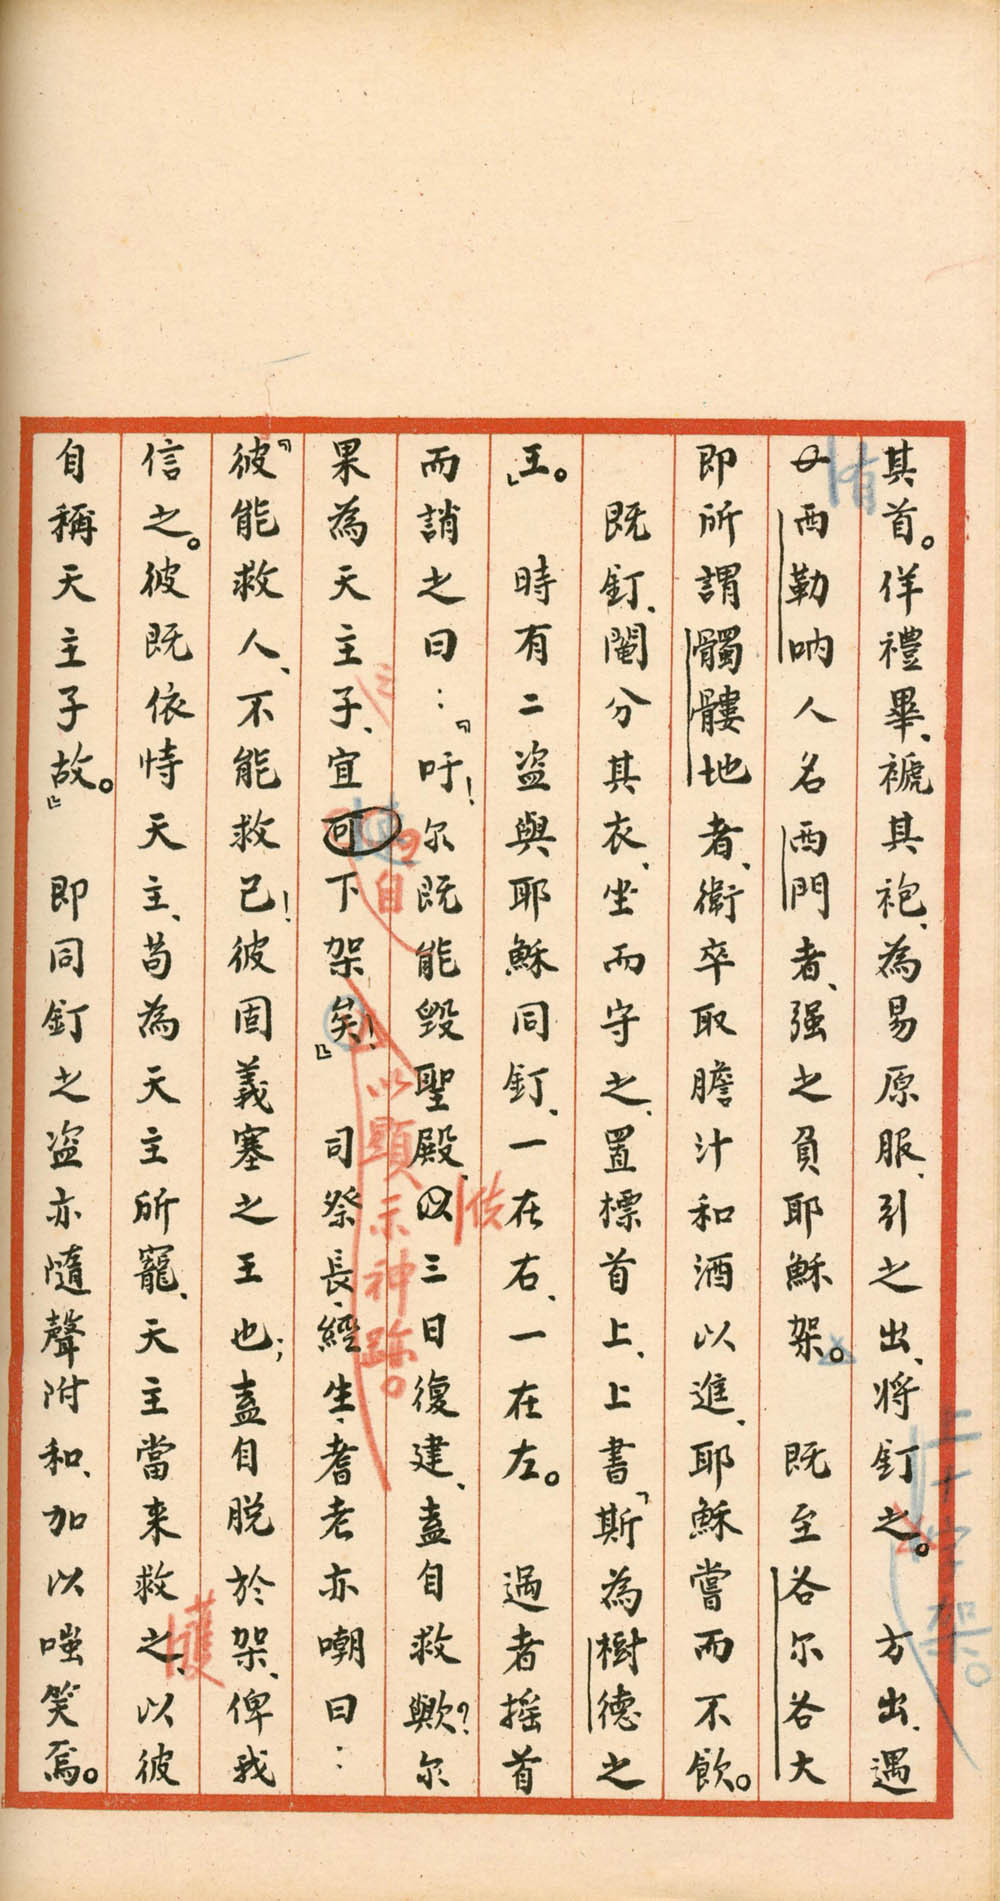 其首。佯禮畢、褫其袍、為易原服、引之出、將釘之。方出、遇
西勒吶人名西門者、强之負耶穌架。既至各尔各大
即所謂髑髏地者、衛卒取膽汁和酒以進、耶穌嘗而不飲。
既釘、鬮分其衣、坐而守之、置標首上、上書「斯為樹德之
王」。時有二盗與耶穌同釘、一在右、一在左。過者摇首
而誚之曰：『吁！尔既能毀聖殿、以三日復建、盍自救歟？尔
果為天主子、宜可下架矣！』司祭長、經生、耆老亦嘲曰：
『彼能救人、不能救己！彼固義塞之王也；盍自脱於架、俾我
信之。彼既依恃天主、苟為天主所寵、天主當来救之、以彼
自稱天主子故。』即同釘之盗亦隨聲附和、加以嗤笑焉。
有
十字架。
自
以顯示神跡。
護